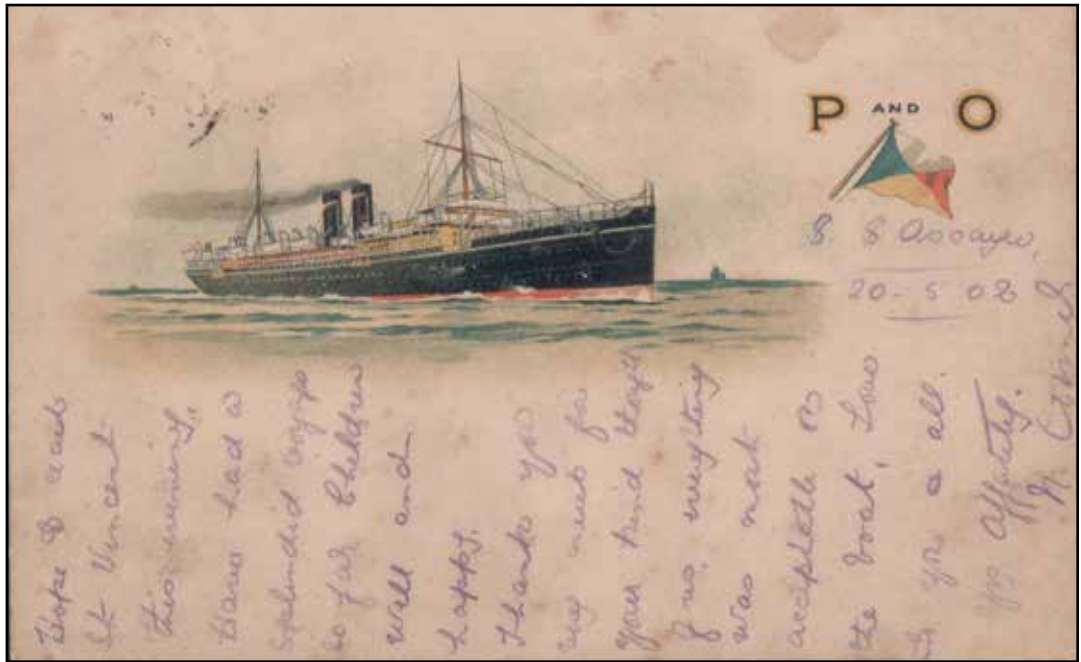 P AND O
S. S Assaye,
20-5 02
Hope to reach
St Vincent
this evening,
Have had a
splendid voyage
so far Children
well and
happy.
Thank you
very much for
your kind thought
of us, everything
was most
acceptable on
the boat, Love
to you all.
Yrs Affately.